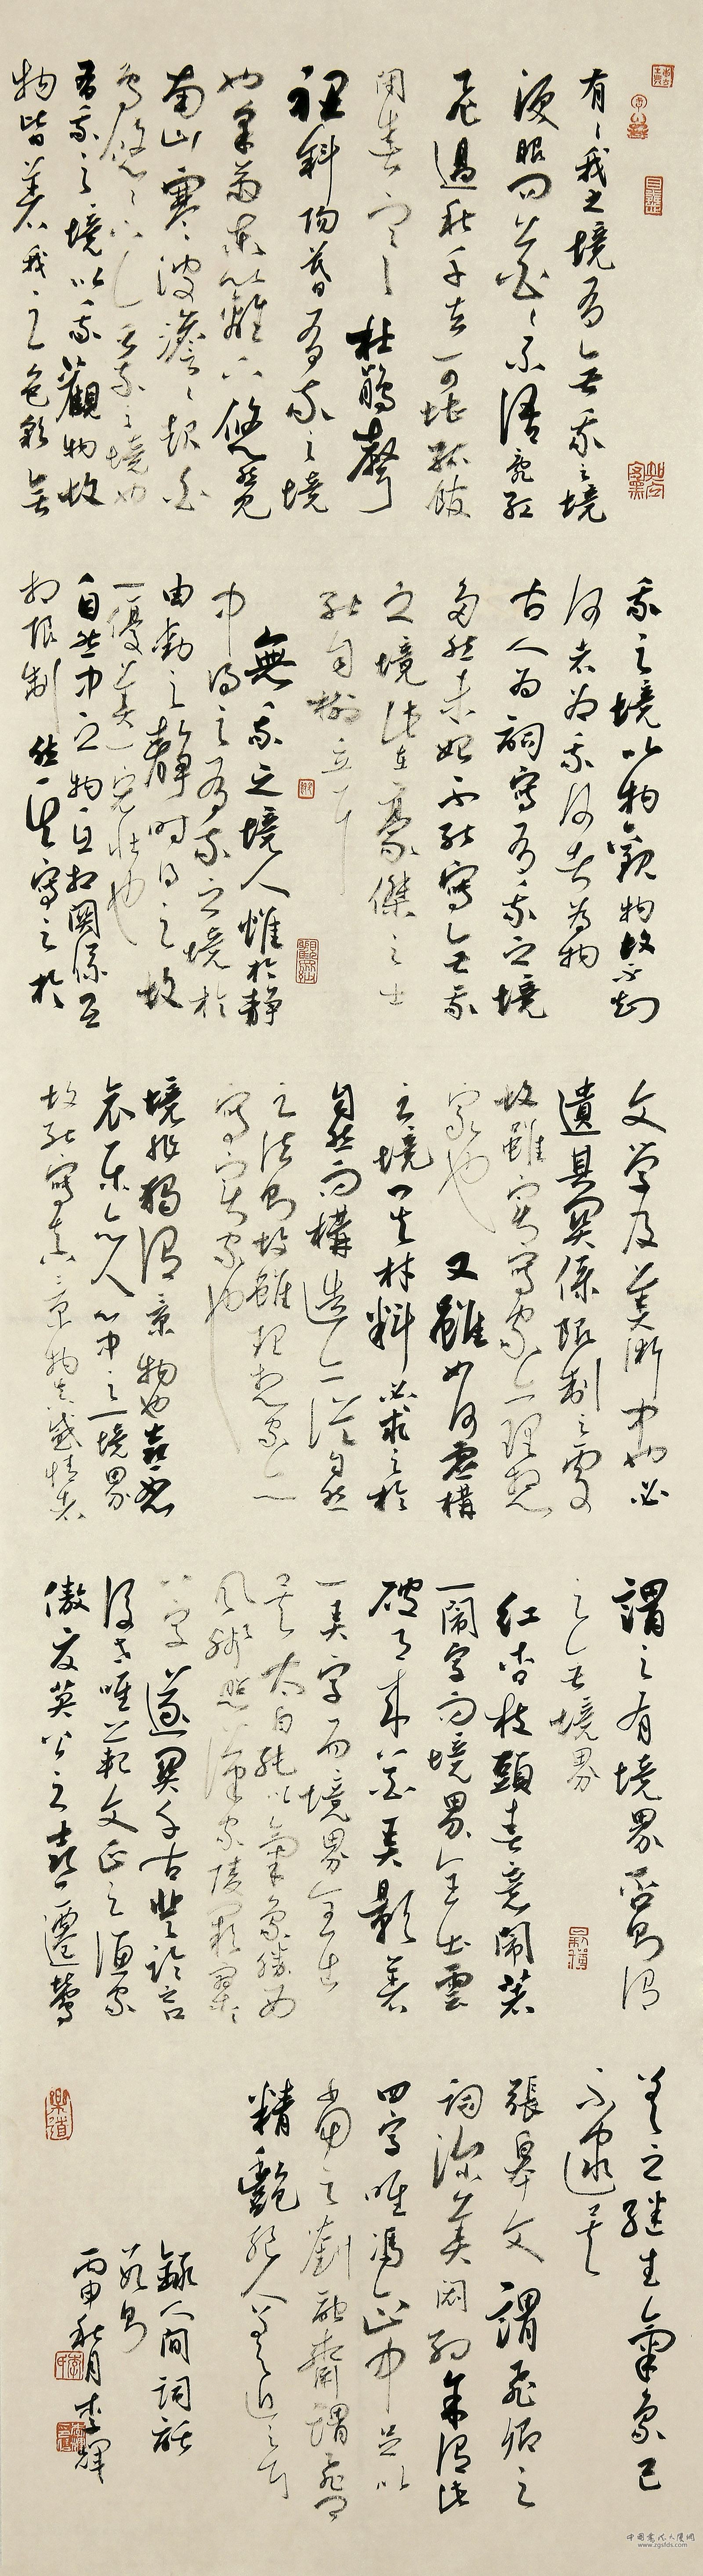 有々我之境有無我之境
淚眼問花々不語亂紅
飛過秋千去可堪孤館
閉春寒 杜鵑聲
裡斜陽暮有我之境
也采菊東籬下悠然見
南山寒波澹々起白
鳥悠々下無我之境也
有我之境以我觀物故
物皆著我之色彩無
我之境以物觀物故不知
何者為我何者為物
古人為詞寫有我之境
多然未始不能寫無我
之境此在豪傑之士
能自樹立耳
無我之境人惟於靜
中得之有我之境於
由動之靜時得之故
一優美一宏壯也
自然中之物互相關係互
相限制然其寫之於
文學及美術中也必
遺其關係限制之處
故雖寫實家亦理想
家也又雖如何虛構
之境其材料必求之於
自然而構造亦從自然
之法則故雖理想家亦
寫實家也
境非獨謂景物也喜怒
哀樂亦人心中之一境界
故能寫真景物真感情者
謂之有境界否則謂
之無境界
紅杏枝頭春意鬧著
一鬧字而境界全出雲
破月來花弄影著
一弄字而境界全出
矣太白純以氣象勝西
風殘照漢家陵闕寥々
八字遂關千古登臨
後世唯范文正之漁家
傲夏英公之喜遷鶯
差之繼生氣象已
不逮矣
張皋文謂飛卿之
詞深美閎約余謂此
四字唯馮正中足以
當之劉融齋謂飛卿
精艷絕人差近之耳
錄人間詞話
數則
丙申秋月李輝
樂道
中國書法人傳網
www.zgsfds.com